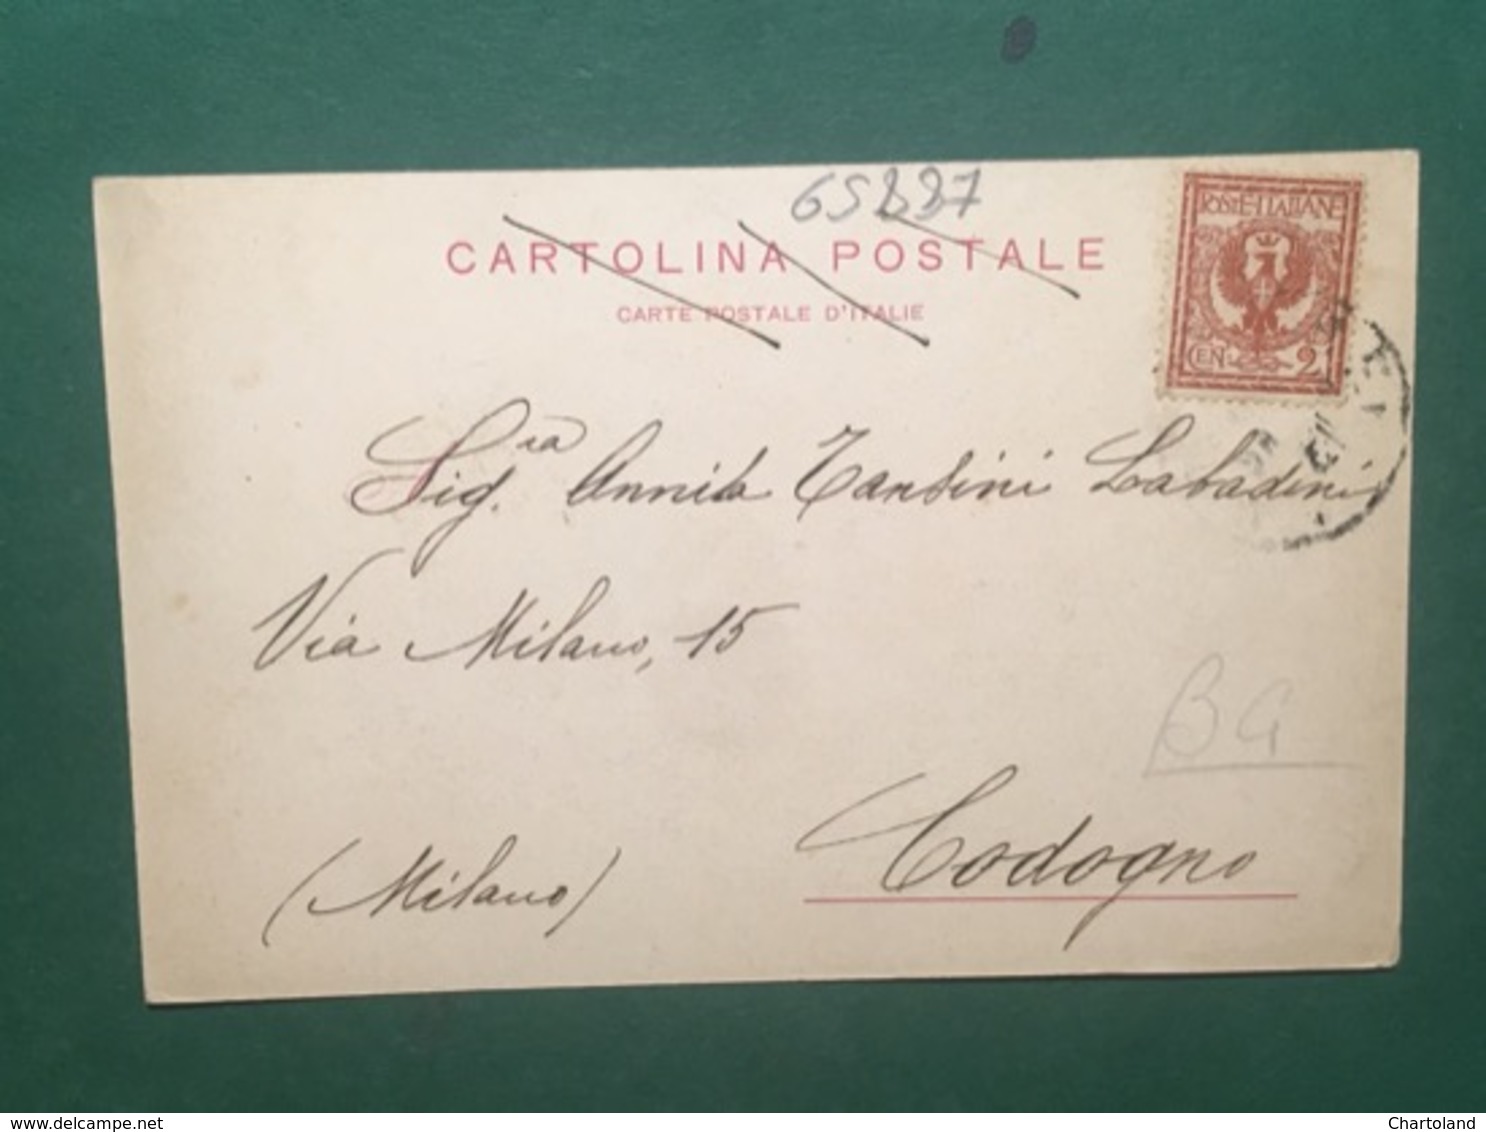 65887
CARTOLINA POSTALE
CARTE POSTALE D'ITALIE
POSTE·ITALIANE
CEN. 2
Sig.ra Annita Tansini Labadini
Via Milano, 15
BG
Codogno
(Milano)
www.delcampe.net
Chartoland